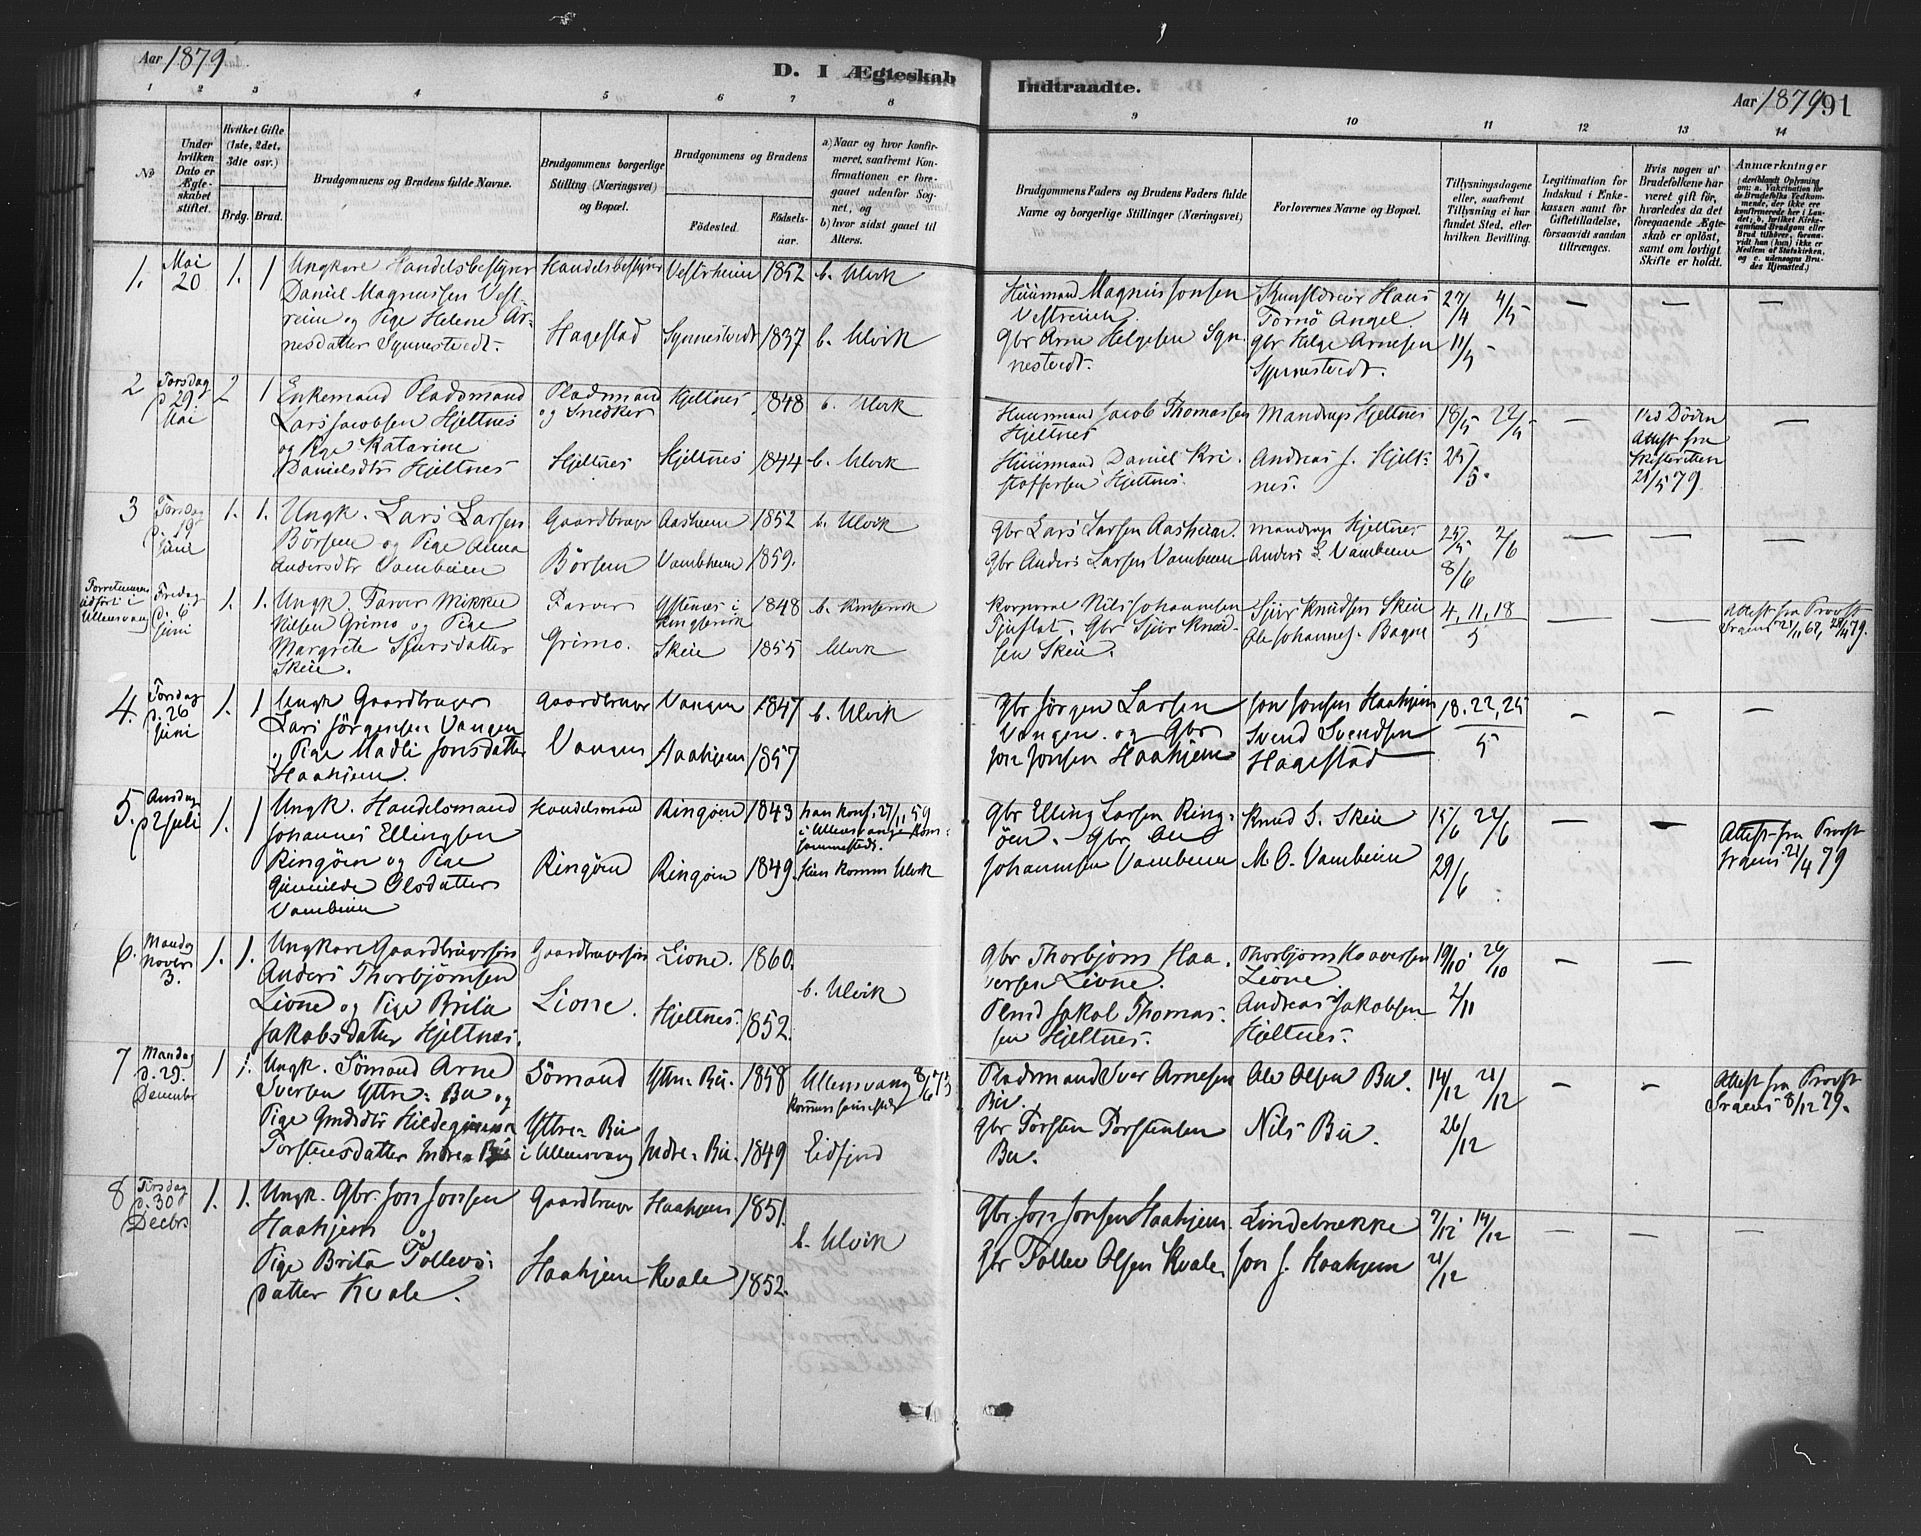 Aar 1879
D. I Ægteskab
Indtraadte.
Aar 1879
91
1 2 3 4 5 6 7 8 9 10 11 12 13 14
No
Under hvilken Dato er Ægteskabet stiftet.
Hvilket Gifte (1ste, 2det, 3die osv.)
Brdg. Brud.
Brudgommens og Brudens fulde Navne.
Brudgommens borgerlige Stilling (Næringsvei) og Bopæl.
Brudgommens og Brudens
Fødested. Fødselsaar.
a) Naar og hvor konfirmeret, saafremt Konfirmationen er foregaaet udenfor Sognet, og
b) hvor sidst gaaet til Alters.
Brudgommens Faders og Brudens Faders fulde Navne og borgerlige Stillinger (Næringsvei)
Forlovernes Navne og Bopæl.
Tillysningsdagene eller, saafremt Tillysning ei har fundet Sted, efter hvilken Bevilling.
Legitimation for Indskud i Enkekassen samt for Giftetilladelse, forsaavidt saadan tiltrænges.
Hvis nogen af Brudefolkene har været gift før, hvorledes da det foregaaende Ægteskab er opløst, samt om lovligt Skifte er holdt.
Anmærkninger
1. Mai 20 1. 1 Ungkare Handelsbestyrer Handelsbestyrer Vestrheim 1852 b. Ulvik
Daniel Magnussen Vestreim og Pige Helene Arnesdatter Synnestvedt. Hagestad Synnestvedt 1837 b. Ulvik
Huusmand Magnus Jonsen Vestreim. Hans Tornö Angel. 27/4 4/5 — — —
Gbr Arne Helgesen Synnestvedt. Gbr Helge Arnesen Synnestvedt. 11/5
2 Torsdag d. 29 Mai 2 1 Enkemand Pladsmand Pladsmand og Snedker Hjeltnes 1848 b. Ulvik
Lars Jacobsen Hjeltnes og Pige Katarine Danielsdtr Hjeltnes Hjeltnes Hjeltnes 1844 b. Ulvik
Huusmand Jacob Thomassen Hjeltnes Mandrup Hjeltnes 18/5 22/5 — Ved Døden —
Huusmand Daniel Kristoffersen Hjeltnes. Andreas J. Hjeltnes. 25/5. Attest fra Skifteretten 21/5 79.
3 Torsdag d. 19 Juni 1. 1. Ungk. Lars Larsen Gaardbruger Aasheim 1852 b. Ulvik
Börsem og Pige Anna Andersdtr Vambeim Börsem Vambheim 1859.
Gbr Lars Larsen Aasheim. Mandrup Hjeltnes 25/5 2/6 — — —
Gbr Anders Larsen Vambeim Anders L. Vambeim 8/6
Forretningen udført i Ullensvang Fredag d. 6 Juni 1. 1. Ungk. Farver Mikkel Farver 1848 b. Kinservik
Nilsen Grimo og Pige Margrete Sjursdatter Skeie. Grimo. Skeie 1855 Ulvik
Korporal Nils Johannesen Tjuflat. Gbr Sjur Knudsen Skeie. Sjur Knudsen Skeie Ole Johannes. Bagne 4, 11, 18/5 — — Attest fra Provst
4. Torsdag d. 26 Juni 1. 1 Ungk Gaardbruger Gaardbruger Vangen 1847 b. Ulvik
Lars Jörgensen Vangen og Pige Madli Jonsdatter Haahjem. Vangen Haahjem 1857
Gbr Jörgen Larsen Vangen. og Gbr Jon Jonsen Haahjem Jon Jonsen Haahjem Svend Svendsen Hagestad 18. 22, 25/5 — — —
5. Onsdag d 2 Juli 1. 1 Ungk. Handelsmand Handelsmand Ringöen 1843 han konf. 27/11 59 i Ullensvang
Johannes Ellingsen Ringöen og Pige Gunnilde Olsdatter Vambeim Ringöen Ringöen 1849. Ulvik
Gbr Elling Larsen Ringöen. Gbr Ole Johannesen Vambeim Knud S. Skeie M. O. Vambeim 15/6 22/6 29/6 — — Attest fra Provst 21/4 79
6. Mandag Novbr 3. 1. 1. Ungkare Gaardbrugersøn Gaardbrugersøn Lione. 1860.
Anders Thorbjörnsen Lione og Pige Brita Jakobsdatter Hjeltnes. Lione. Hjeltnes. 1852. b. Ulvik
Gbr Thorbjörn Haaversen Lione. Thorbjörn Haaversen Lione. 19/10 26/10 — —
Plmd Jakob Thomassen Hjeltnes. Andreas Jakobsen Hjeltnes. 2/11
7 Mandag d. 29. December 1 1. Ungk. Sömand Arne Sömand Yttre-Bu. 1858 Ullensvang
Sversen Yttre-Bu og Pige Torstensdatter Indre-Bu Yttre-Bu i Ullensvang Indre-Bu. 1849 Eidfjord
Pladsmand Sver Arnesen Bu. Ole Olsen Bu. 14/12 21/12 — — Attest fra Provst 8/12 79.
Gbr Torsten Torstensen Bu. Nils Bu. 26/12
8 Tirsdag d. 30 Decbr 1. 1. Ungk. Gbr. Jon Jonsen Gaardbruger Haahjem 1851.
Haahjem og Pige Brita Tollevsdatter Kvale. Haahjem Kvale 1852. b. Ulvik
Gbr. Jon Jonsen Haahjem. Lindebrække 7/12 14/12 — — —
Gbr Tollev Olsen Kvale. Jon J. Haahjem 21/12